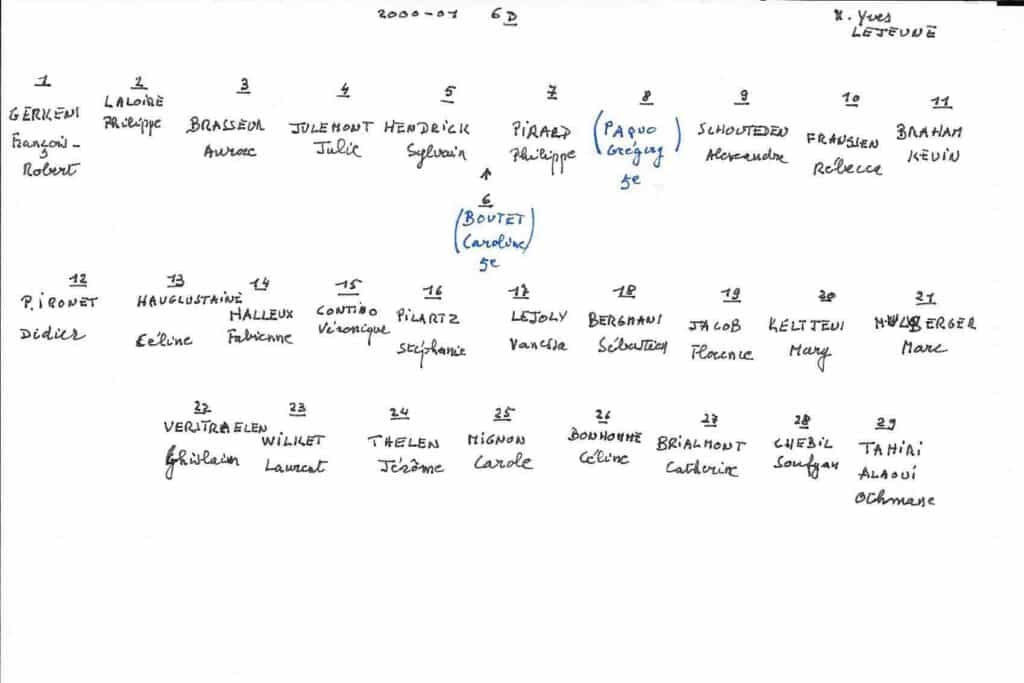 2000-01 6D
M. Yves
LEJEUNE
1
GERKENI
François-
Robert
2
LALOIRE
Philippe
3
BRASSEUR
Aurore
4
JULEMONT
Julie
5
HENDRICK
Sylvain
6
(BOUTET
Caroline)
5e
7
PIRARD
Philippe
8
(PAQUO
Grégory)
5e
9
SCHOUTEDEN
Alexandre
10
FRANSSEN
Rébecca
11
BRAHAM
KEVIN
12
PIRONET
Didier
13
HAUGLUSTAINE
Céline
14
HALLEUX
Fabienne
15
CONTINO
Véronique
16
PILARTZ
Stéphanie
17
LEJOLY
Vanessa
18
BERGMANI
Sébastien
19
JACOB
Florence
20
KELTTENI
Mary
21
Marc
22
VERSTRAELEN
Ghislain
23
WILKET
Laurent
24
THELEN
Jérôme
25
MIGNON
Carole
26
BONHOMME
Céline
27
BRIALMONT
Catherine
28
CHEBIL
Soufyan
29
TAHIRI
ALAOUI
Othmane